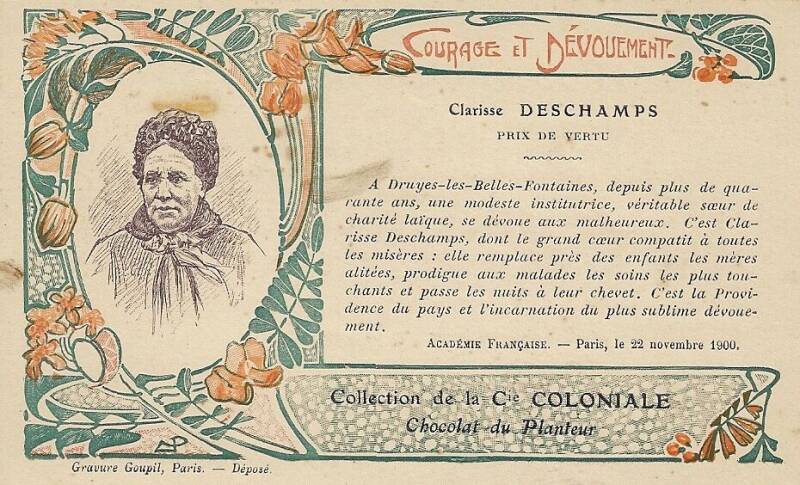 COURAGE ET DÉVOUEMENT
Clarisse DESCHAMPS
PRIX DE VERTU
A Druyes-les-Belles-Fontaines, depuis plus de qua-
rante ans, une modeste institutrice, véritable sœur de
charité laïque, se dévoue aux malheureux. C'est Cla-
risse Deschamps, dont le grand cœur compatit à toutes
les misères : elle remplace près des enfants les mères
alitées, prodigue aux malades les soins les plus tou-
chants et passe les nuits à leur chevet. C'est la Provi-
dence du pays et l'incarnation du plus sublime dévoue-
ment.
ACADÉMIE FRANÇAISE. — Paris, le 22 novembre 1900.
Collection de la Cie COLONIALE
Chocolat du Planteur
Gravure Goupil, Paris. — Déposé.